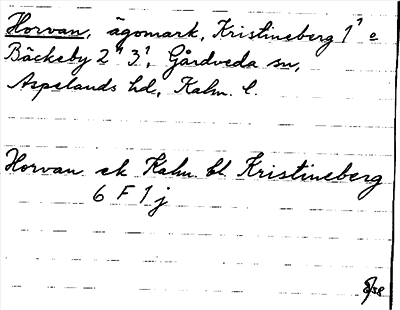 Horvan, ägomark, Kristineberg 1¹ o
Bäckeby 2" 3¹, Gårdveda sn,
Aspelands hd, Kalm. l.
Horvan ek Kalm. bl. Kristineberg
6 F 1 j